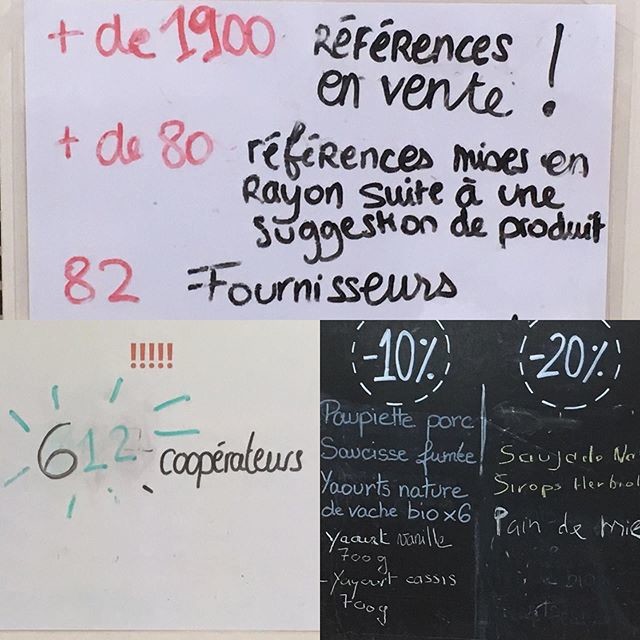 + de 1900 RÉFÉRENCES
en vente !
+ de 80 RéféRences mises en
Rayon suite à une
suggestion de produit
82 Fournisseurs
!!!!!
612 coopérateurs
-10%
Paupiette porc
Saucisse fumée
Yaourts nature
de vache bio x6
Yaourt vanille
700g
- Yayourt cassis
700g
-20%
Sirops
Pain de mie